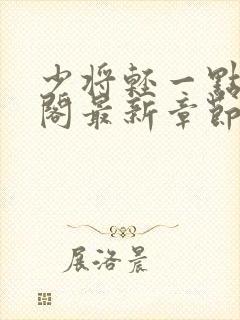 少将輕一點
閣最新章節
展洛晨